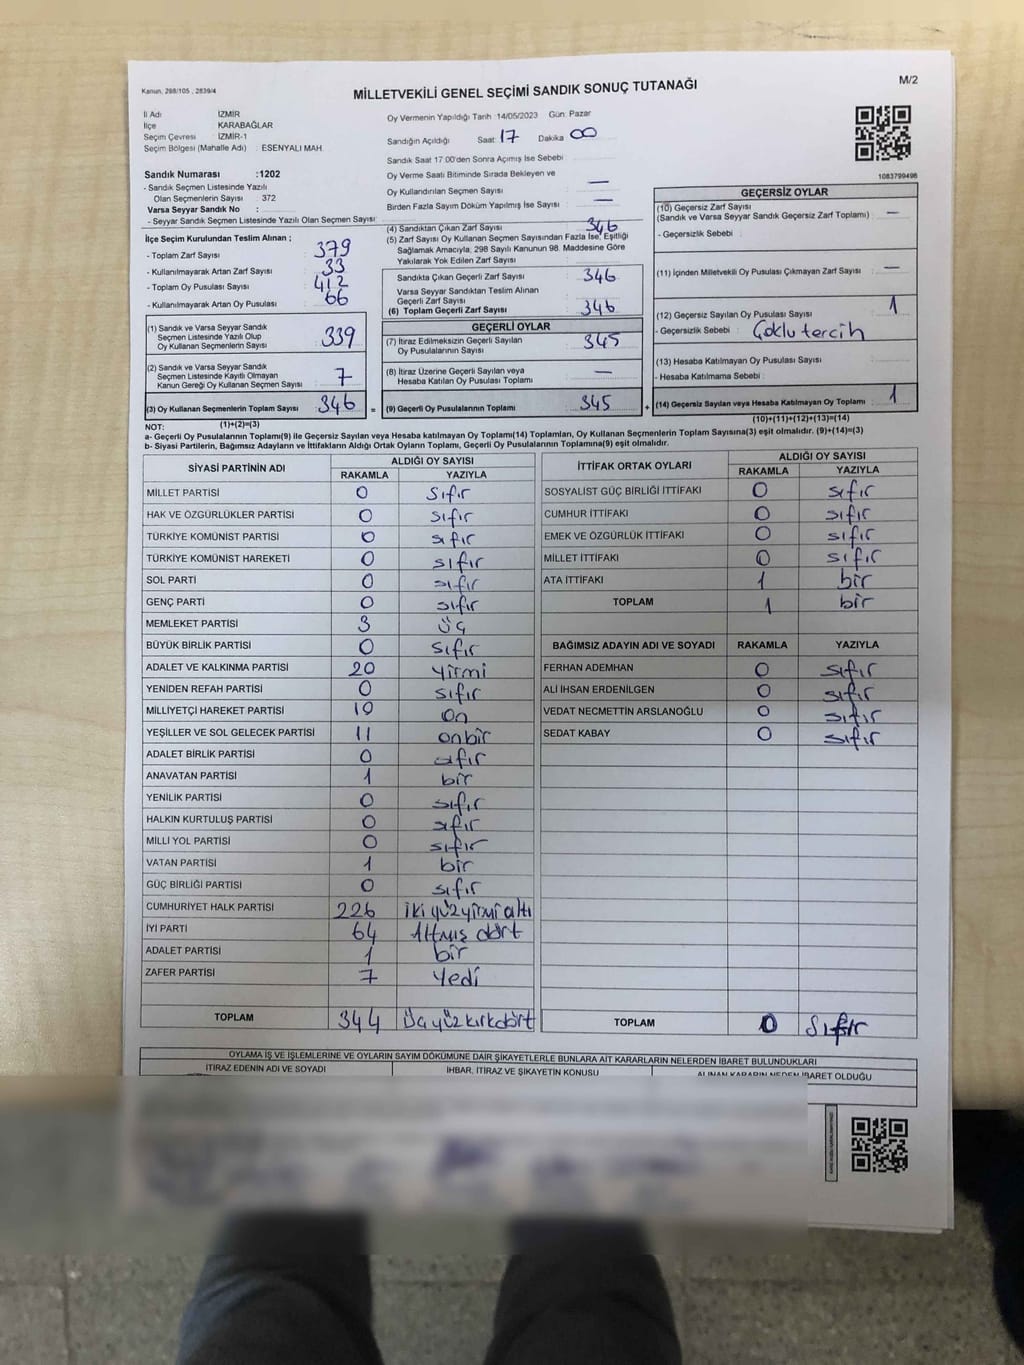 Kanun, 298/105 , 2839/4
MİLLETVEKİLİ GENEL SEÇİMİ SANDIK SONUÇ TUTANAĞI
M/2
İl Adı : İZMİR
İlçe : KARABAĞLAR
Seçim Çevresi : İZMİR-1
Seçim Bölgesi (Mahalle Adı) : ESENYALI MAH.
Sandık Numarası :1202
- Sandık Seçmen Listesinde Yazılı
Olan Seçmenlerin Sayısı : 372
Varsa Seyyar Sandık No :
- Seyyar Sandık Seçmen Listesinde Yazılı Olan Seçmen Sayısı:
İlçe Seçim Kurulundan Teslim Alınan ;
- Toplam Zarf Sayısı : 379
- Kullanılmayarak Artan Zarf Sayısı : 33
- Toplam Oy Pusulası Sayısı : 412
- Kullanılmayarak Artan Oy Pusulası : 66
(1) Sandık ve Varsa Seyyar Sandık
Seçmen Listesinde Yazılı Olup
Oy Kullanan Seçmenlerin Sayısı : 339
(2) Sandık ve Varsa Seyyar Sandık
Seçmen Listesinde Kayıtlı Olmayan
Kanun Gereği Oy Kullanan Seçmen Sayısı : 7
(3) Oy Kullanan Seçmenlerin Toplam Sayısı : 346 =
(1)+(2)=(3)
Oy Vermenin Yapıldığı Tarih :14/05/2023 Gün: Pazar
Sandığın Açıldığı Saat: 17 Dakika: 00
Sandık Saat 17:00'den Sonra Açımış İse Sebebi :
Oy Verme Saati Bitiminde Sırada Bekleyen ve
Oy Kullandırılan Seçmen Sayısı : —
Birden Fazla Sayım Döküm Yapılmış İse Sayısı : —
(4) Sandıktan Çıkan Zarf Sayısı : 346
(5) Zarf Sayısı Oy Kullanan Seçmen Sayısından Fazla İse, Eşitliği
Sağlamak Amacıyla, 298 Sayılı Kanunun 98. Maddesine Göre
Yakılarak Yok Edilen Zarf Sayısı :
Sandıkta Çıkan Geçerli Zarf Sayısı : 346
Varsa Seyyar Sandıktan Teslim Alınan
Geçerli Zarf Sayısı :
(6) Toplam Geçerli Zarf Sayısı : 346
GEÇERLİ OYLAR
(7) İtiraz Edilmeksizin Geçerli Sayılan
Oy Pusulalarının Sayısı : 345
(8) İtiraz Üzerine Geçerli Sayılan veya
Hesaba Katılan Oy Pusulası Toplamı : —
(9) Geçerli Oy Pusulalarının Toplamı : 345 +
1083799496
GEÇERSİZ OYLAR
(10) Geçersiz Zarf Sayısı
(Sandık ve Varsa Seyyar Sandık Geçersiz Zarf Toplamı) : —
- Geçersizlik Sebebi :
(11) İçinden Milletvekili Oy Pusulası Çıkmayan Zarf Sayısı : —
(12) Geçersiz Sayılan Oy Pusulası Sayısı : 1
- Geçersizlik Sebebi : Çoklu tercih
(13) Hesaba Katılmayan Oy Pusulası Sayısı :
- Hesaba Katılmama Sebebi :
(14) Geçersiz Sayılan veya Hesaba Katılmayan Oy Toplamı : 1
(10)+(11)+(12)+(13)=(14)
NOT:
a- Geçerli Oy Pusulalarının Toplamı(9) ile Geçersiz Sayılan veya Hesaba katılmayan Oy Toplamı(14) Toplamları, Oy Kullanan Seçmenlerin Toplam Sayısına(3) eşit olmalıdır. (9)+(14)=(3)
b- Siyasi Partilerin, Bağımsız Adayların ve İttifakların Aldığı Ortak Oyların Toplamı, Geçerli Oy Pusulalarının Toplamına(9) eşit olmalıdır.
SİYASİ PARTİNİN ADI ALDIĞI OY SAYISI
RAKAMLA YAZIYLA
MİLLET PARTİSİ 0 sıfır
HAK VE ÖZGÜRLÜKLER PARTİSİ 0 sıfır
TÜRKİYE KOMÜNİST PARTİSİ 0 sıfır
TÜRKİYE KOMÜNİST HAREKETİ 0 sıfır
SOL PARTİ 0 sıfır
GENÇ PARTİ 0 sıfır
MEMLEKET PARTİSİ 3 üç
BÜYÜK BİRLİK PARTİSİ 0 sıfır
ADALET VE KALKINMA PARTİSİ 20 yirmi
YENİDEN REFAH PARTİSİ 0 sıfır
MİLLİYETÇİ HAREKET PARTİSİ 10 on
YEŞİLLER VE SOL GELECEK PARTİSİ 11 onbir
ADALET BİRLİK PARTİSİ 0 sıfır
ANAVATAN PARTİSİ 1 bir
YENİLİK PARTİSİ 0 sıfır
HALKIN KURTULUŞ PARTİSİ 0 sıfır
MİLLİ YOL PARTİSİ 0 sıfır
VATAN PARTİSİ 1 bir
GÜÇ BİRLİĞİ PARTİSİ 0 sıfır
CUMHURİYET HALK PARTİSİ 226 iki yüz yirmi altı
İYİ PARTİ 64 Altmış dört
ADALET PARTİSİ 1 bir
ZAFER PARTİSİ 7 yedi
TOPLAM 344 üç yüz kırk dört
İTTİFAK ORTAK OYLARI ALDIĞI OY SAYISI
RAKAMLA YAZIYLA
SOSYALIST GÜÇ BİRLİĞİ İTTİFAKI 0 sıfır
CUMHUR İTTİFAKI 0 sıfır
EMEK VE ÖZGÜRLÜK İTTİFAKI 0 sıfır
MİLLET İTTİFAKI 0 sıfır
ATA İTTİFAKI 1 bir
TOPLAM 1 bir
BAĞIMSIZ ADAYIN ADI VE SOYADI RAKAMLA YAZIYLA
FERHAN ADEMHAN 0 sıfır
ALİ İHSAN ERDENİLGEN 0 sıfır
VEDAT NECMETTİN ARSLANOĞLU 0 sıfır
SEDAT KABAY 0 sıfır
TOPLAM 0 sıfır
OYLAMA İŞ VE İŞLEMLERİNE VE OYLARIN SAYIM DÖKÜMÜNE DAİR ŞİKAYETLERLE BUNLARA AİT KARARLARIN NELERDEN İBARET BULUNDUKLARI
İTİRAZ EDENİN ADI VE SOYADI İHBAR, İTİRAZ VE ŞİKAYETİN KONUSU ALINAN KARARIN NEDEN İBARET OLDUĞU